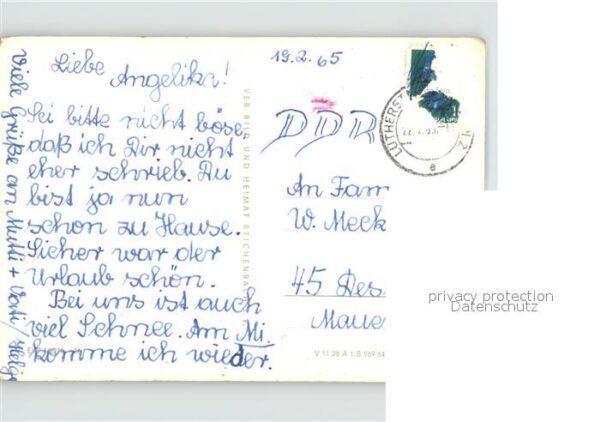 19.2.65
Liebe
Angelika!
Sei bitte nicht böse
daß ich Dir nicht
eher schrieb. Du
bist ja nun
schon zu Hause.
Sicher war der
Urlaub schön.
Bei uns ist auch
viel Schnee. Am Mi.
komme ich wieder.
Viele Grüße an Mutti + Vati / Helga
VEB BILD UND HEIMAT REICHENBA
DDR
LUTHERST
42
e
An Fam
W. Meck
45 Des
Maue
V 11 28 A 1/B 969/64
privacy protection
Datenschutz